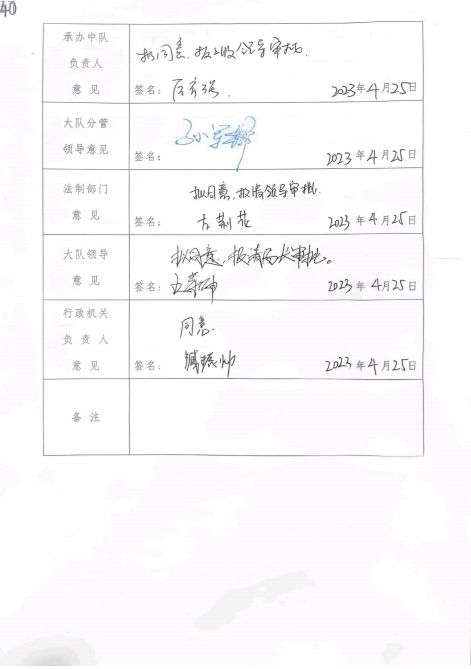 40
承办中队
负责人
意见
拟同意，报
签名：
2023年4月25日
大队分管
领导意见
签名：
2023年4月25日
法制部门
意见
拟同意，报请领导审批.
签名：古荆花
2023年4月25日
大队领导
意见
拟同意，报请局长审批。
签名：
2023年4月25日
行政机关
负责人
意见
同意.
签名：
2023年4月25日
备注